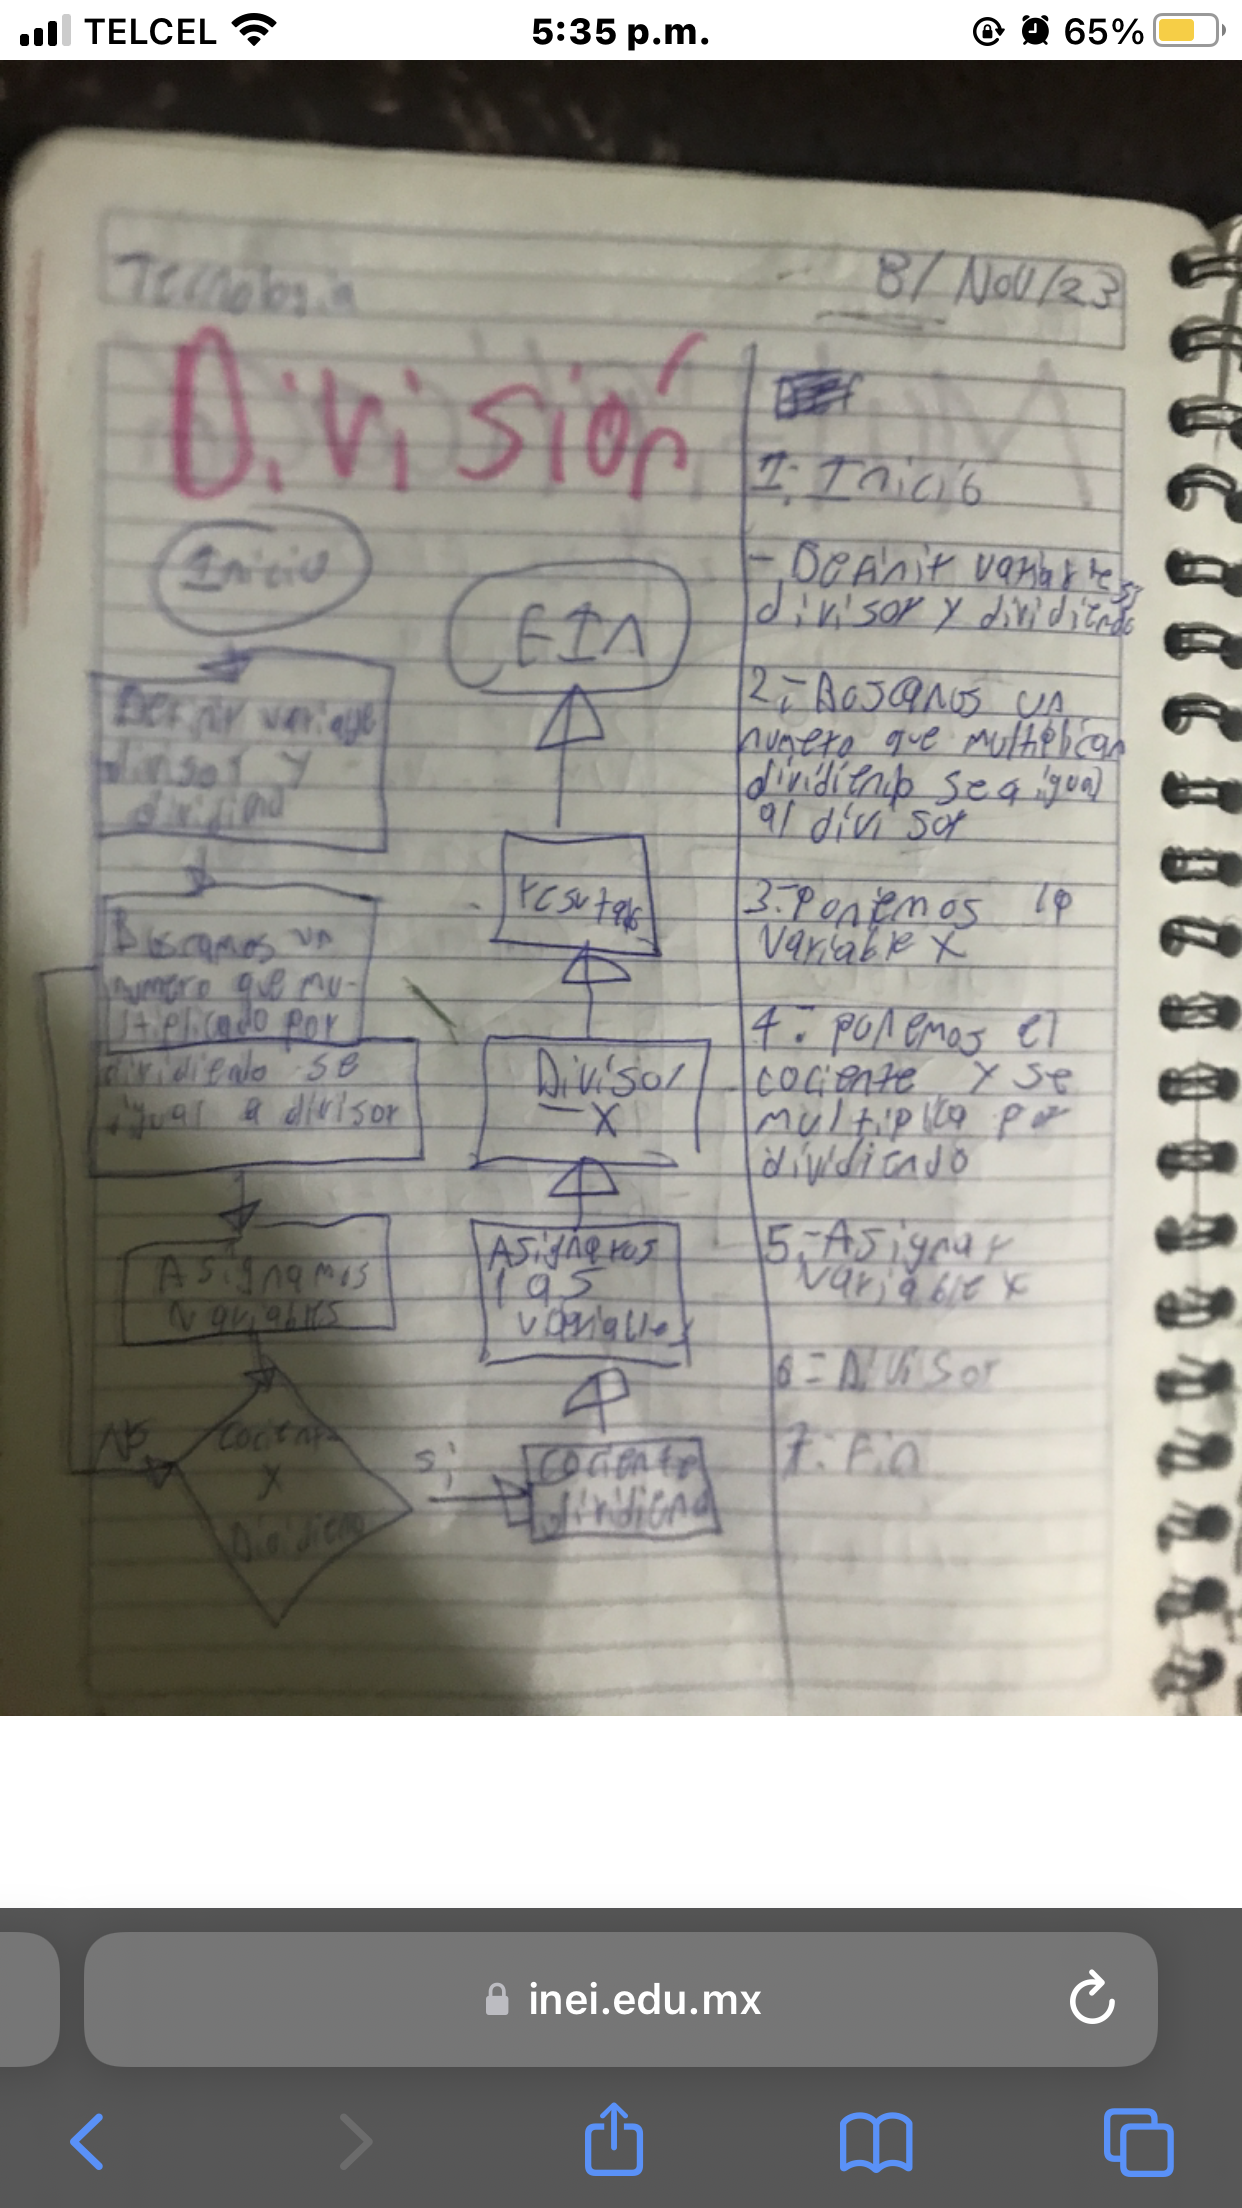 TELCEL
5:35 p.m.
65%
Tecnologia
8/Nov/23
División
Inicio
Definir variabe
divisor y
dividiend
Buscamos un
numero que mu-
ltiplicado por
dividiendo se
igual a divisor
Asignamos
variables
Cociente
X
Dividiend
No
si
cociente
dividiend
Asignamos
las
variables
Divisor
- X
resutado
FIn
1.- Inició
- Definir variables
divisor y dividiendo
2.- Boscanos un
numero que multiplican
dividiendo sea igual
al divisor
3.- Ponemos la
variable x
4.- ponemos el
cociente y se
multiplica por
dividiendo
5.- Asignar
variable x
6 = Divisor
7.- Fin
inei.edu.mx